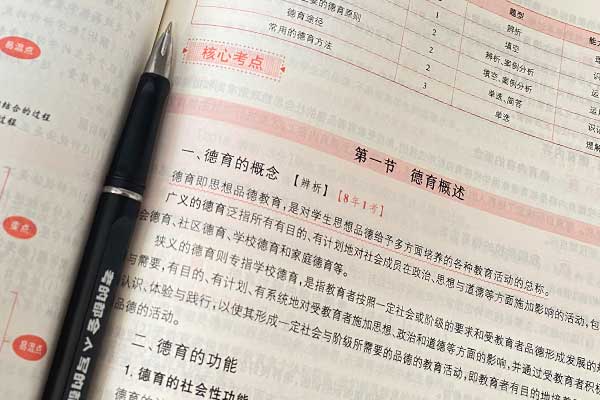 要的德育原则 1 题型
德育途径 2 辨析
常用的德育方法 2 填空
2 辨析、案例分析
2 填空、案例分析
3 单选、简答
单选
易混点
核心考点
结合的过程
过程
第一节 德育概述
一、德育的概念 【辨析】【8年1考】
德育即思想品德教育，是对学生思想品德给予多方面培养的各种教育活动的总称。
广义的德育泛指所有有目的、有计划地对社会成员在政治、思想与道德等方面施加影响的活动，包
会德育、社区德育、学校德育和家庭德育等。
狭义的德育则专指学校德育，是指教育者按照一定社会或阶级的要求和受教育者品德形成发展的规
与需要，有目的、有计划、有系统地对受教育者施加思想、政治和道德等方面的影响，并通过受教育者积极
认识、体验与践行，以使其形成一定社会与阶级所需要的品德的教育活动，即教育者有目的地培养
品德的活动。
二、德育的功能
1. 德育的社会性功能
易混点